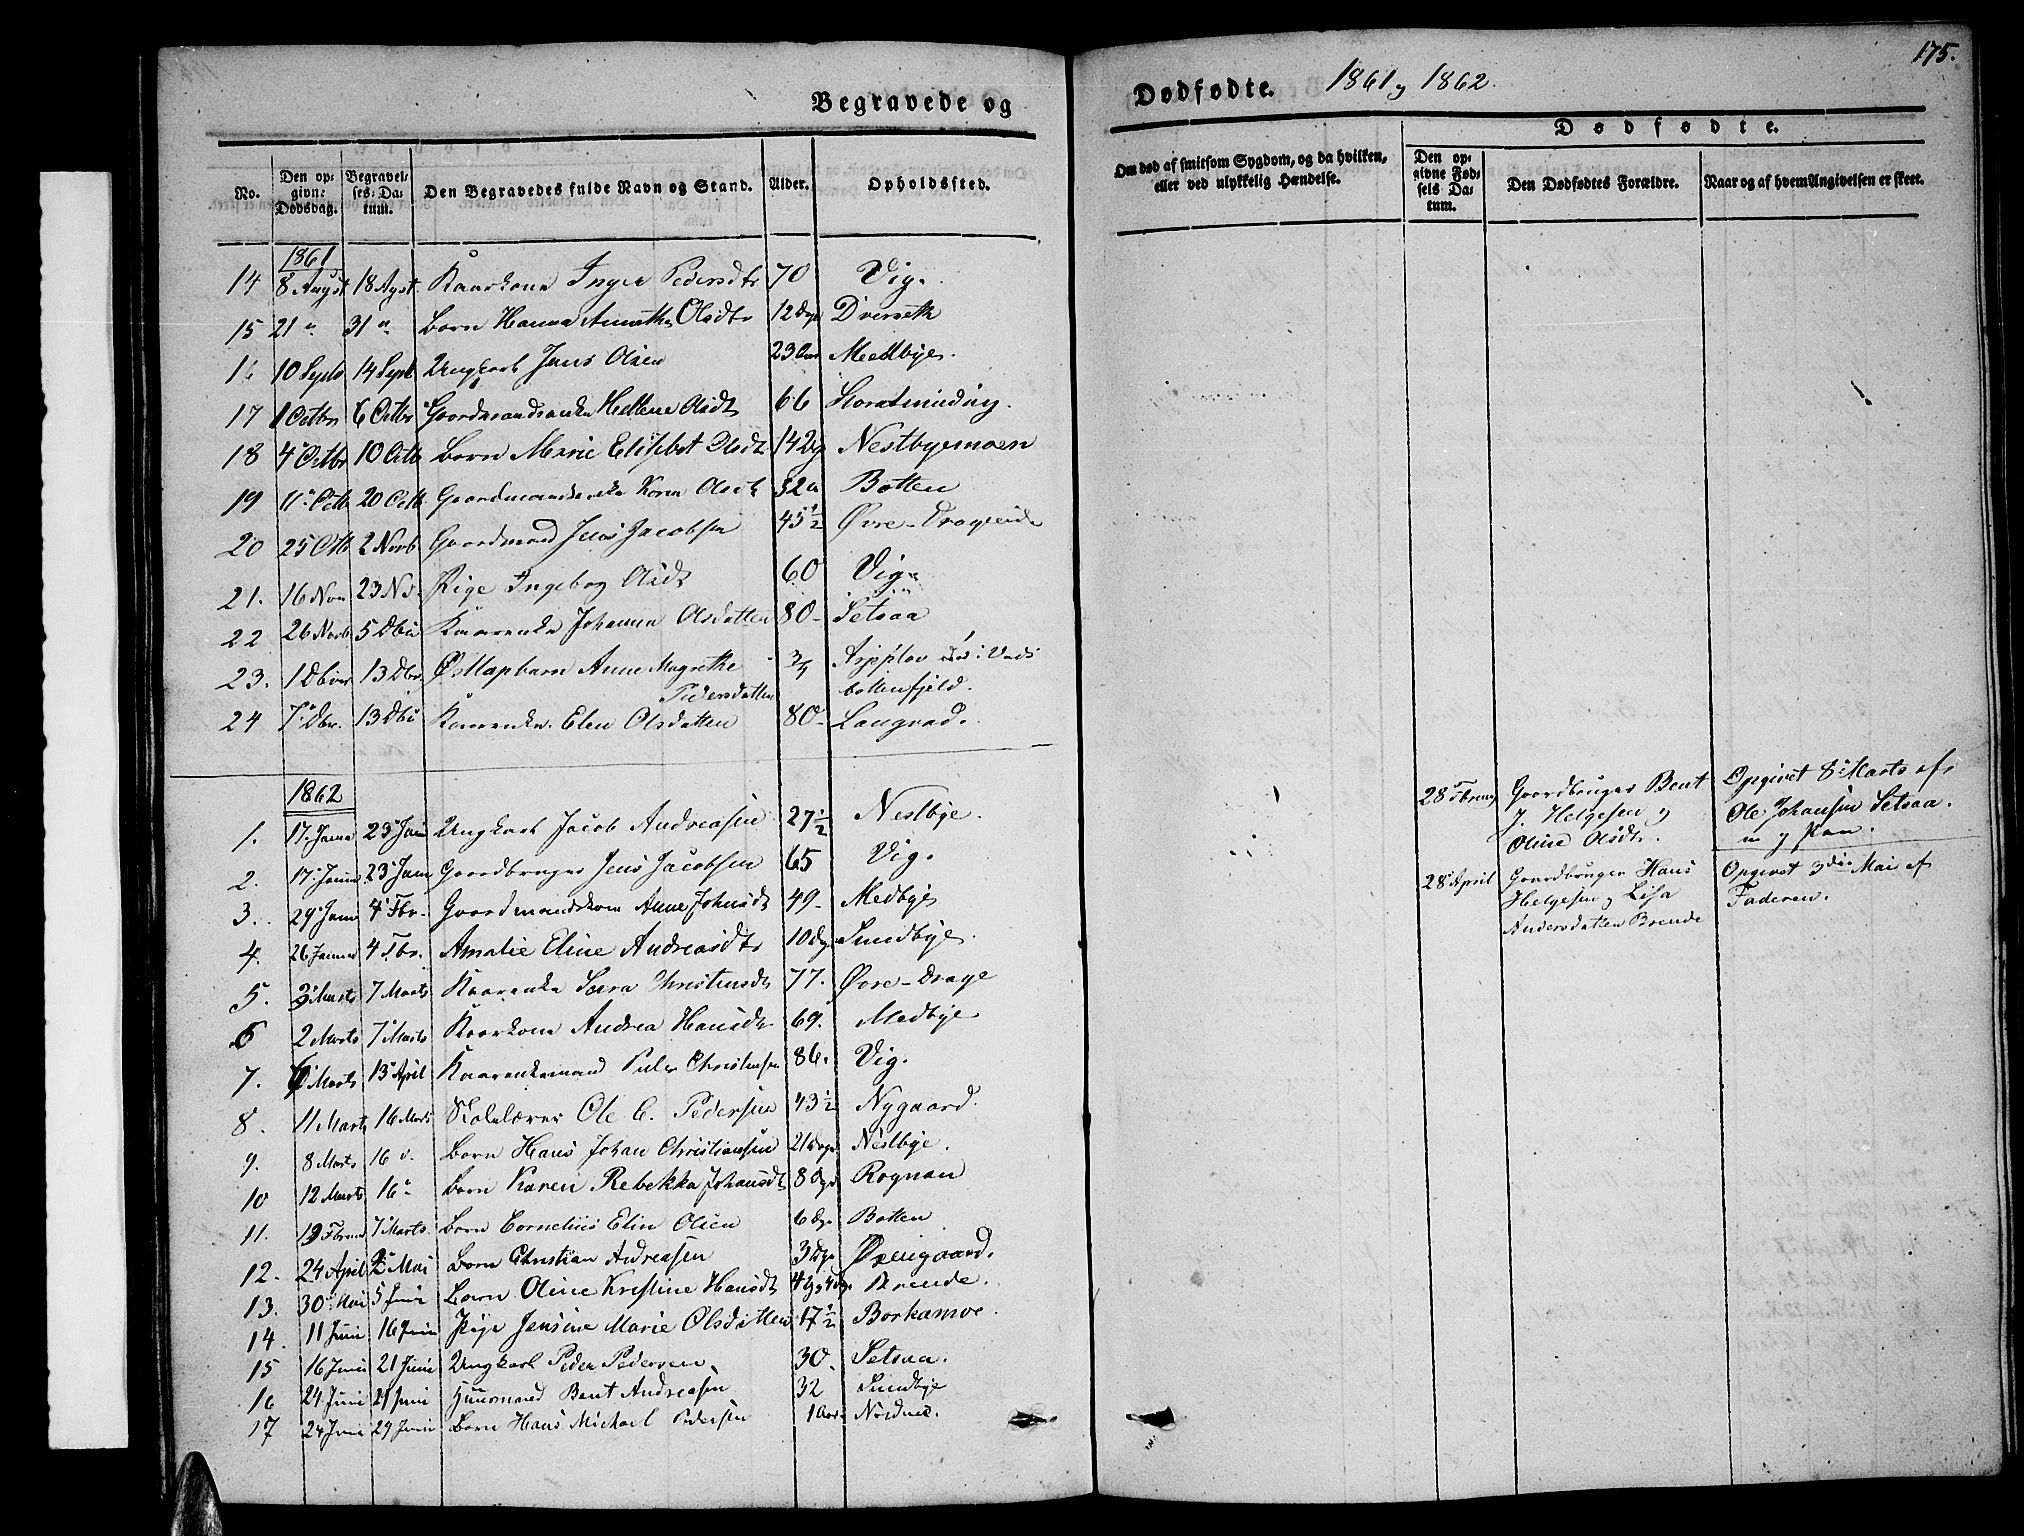 175.
Begravede og Dødfødte. 1861 og 1862.
No. Den opgivne Dødsdag. Begravelses-Datum. Den Begravedes fulde Navn og Stand. Alder. Opholdssted. Om død af smitsom Sygdom, og da hvilken, eller ved ulykkelig Hændelse.
Dødfødte.
Den opgivne Fødsels Datum. Den Dødfødtes Forældre. Naar og af hvem Angivelsen er skeet.
1861
14 8 Augst 18 Agst. Kaarkone Inger Pedersdtr 70 Vig.
15 21 " 31 " Barn Hanna Olsdtr 12 Dge Dverseth
16 10 Septb 14 Sept Ungkarl Jens Olsen 23 Aar Medbye.
17 1 Octbr 6 Octbr Gaardmandsenke Hellene Olsdt 66
18 4 Octbr 10 Octb Barn Marie Elisbet Olsdt 14 Dg Nestbyemoen
19 11 Octb 20 Octb Gaardmandsenke Karen Olsdt 52 a Botten
20 25 Octb 2 Novb Gaardmand Jens Jacobsen 45 1/2 Øvre-Drageeide
21. 16 Nov 23 Nov. Pige Ingebog Olsdt 60 Vig
22 26 Novb 5 Dbr Kaarenke Johanna Olsdatter 80 Setsaa
23. 1 Dbr 13 Dbr. Østlapbarn Anne Magrethe Pedersdatter 3/4 Arpplov i Vads-
bottenfjeld.
24 7 Dbr. 13 Dbr Kaarenke Elen Olsdatter 80 Langvad.
1862
1. 17 Janu 23 Janu Ungkarl Jacob Andreasen 27 1/2 Nestbye.
2. 17 Janu 23 Janu Gaardbruger Jens Jacobsen 65 Vig.
3. 29 Janu 4 Fbr. Gaardmandskone Anne Johnsdt 49 Medbye
4. 26 Januar 4 Fbr. Amalie Eline Andreasdtr 10 Dge Sundbye
5. 3 Marts 7 Marts Kaarenke Sara Christensdt 77. Øvre-Drage
6 2 Marts 7 Marts Kaarkone Andrea Hansdtr 69. Medbye
7. 6 Marts 13 April Kaarenkemand Peder Christensen 86. Vig.
8. 11 Marts 16 Marts Skolelærer Ole C. Pedersen 43 1/2 Nygaard.
9. 8 Marts 16 " Barn Hans Johan Christiansen 21 Dage Nestbye.
10 12 Marts 16 " Barn Karen Rebekka Johansdt 8 Dge Rognan
11. 19 Fbruar 7 Marts Barn Cornelius Elin Olsen 6 Dge Botten
12. 24 April 2 Mai Barn Christian Andreasen 3 Dge Øxengaard.
13. 30 Mai 5 Juni Barn Oline Kristine Hansdt Brende.
14. 11 Juni 16 Juni Pige Jensine Marie Olsdatter 17 1/2 Borkamoe.
15 16 Juni 21 Juni Ungkarl Peder Pedersen 30. Setsaa.
16 24 Juni 29 Juni Huusmand Bent Andreasen 32 Sundbye
17 24 Juni 29 Juni Barn Hans Michael Pedersen 1 Aar Nordnes.
28 Fbruar Gaardbruger Bent J. Helgesen og Oline Olsdt. Opgivet 8 Marts af Ole Johansen Setsaa.
28 April Gaardbruger Hans Helgesen og Lisa Andersdatter Brende Opgivet 3die Mai af Faderen.